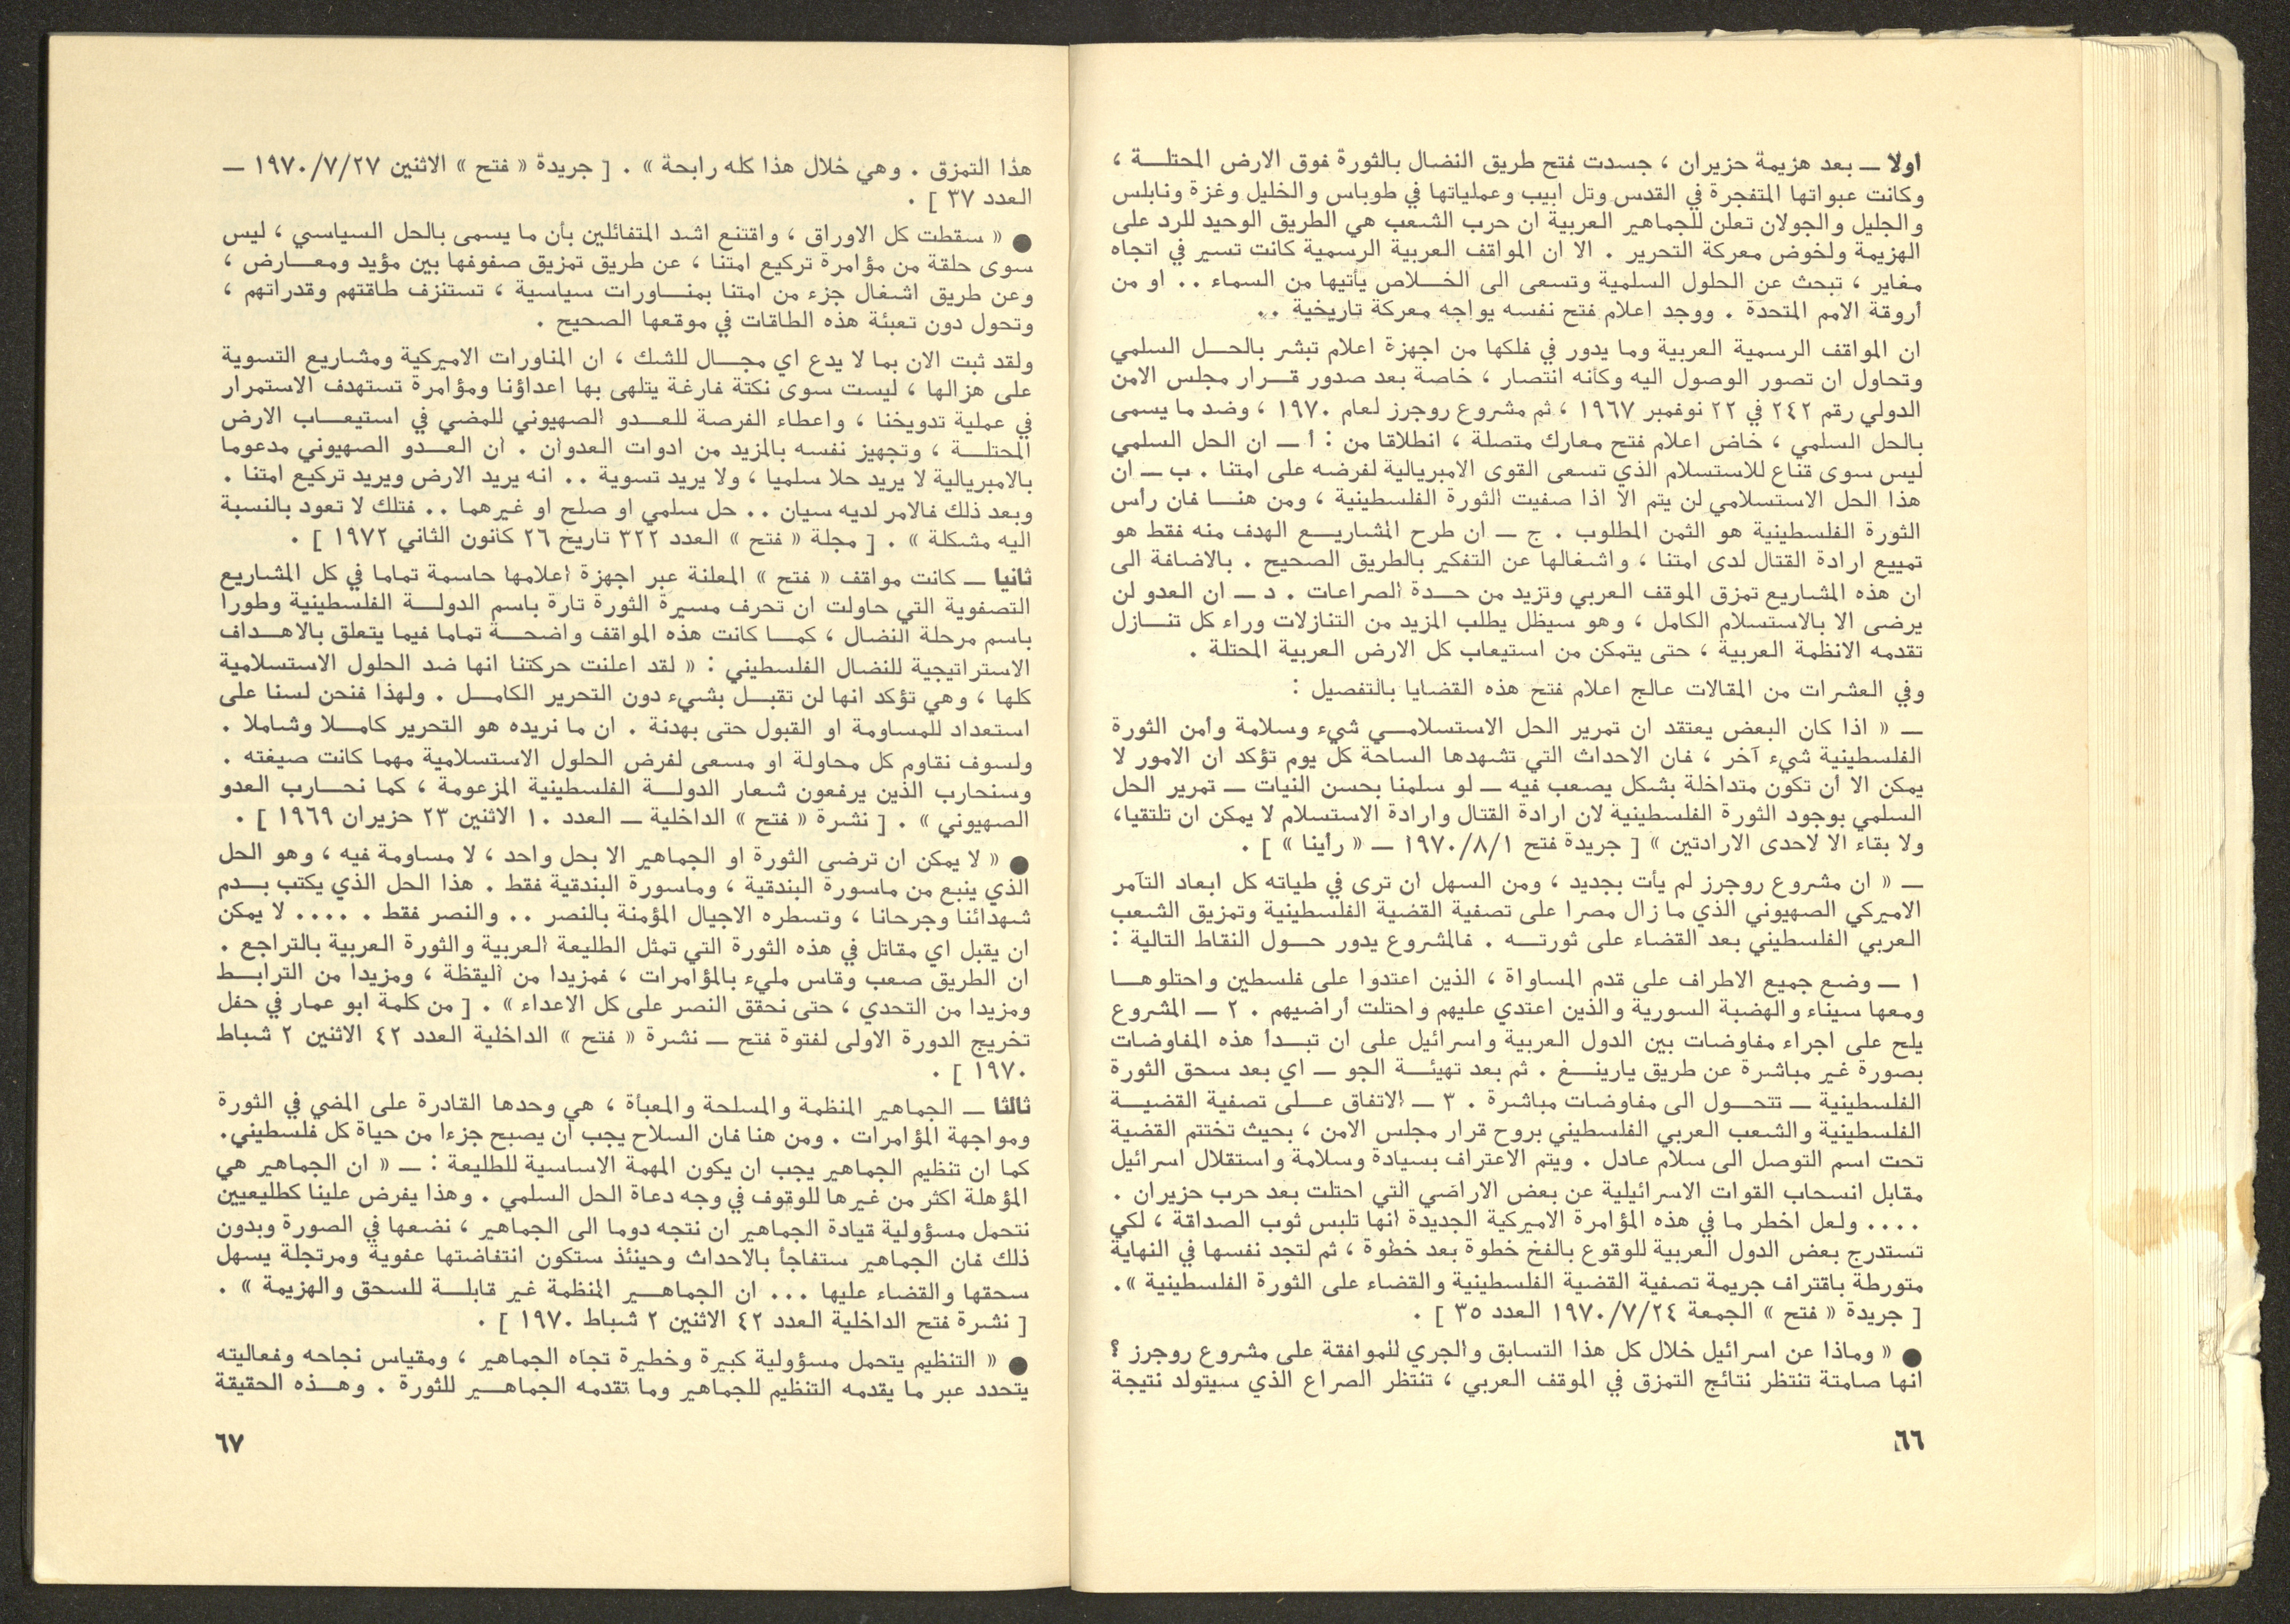 اولا — بعد هزيمة حزيران ، جسدت فتح طريق النضال بالثورة فوق الارض المحتلـــة ،
وكانت عبواتها المتفجرة في القدس وتل ابيب وعملياتها في طوباس والخليل وغزة ونابلس
والجليل والجولان تعلن للجماهير العربية ان حرب الشعب هي الطريق الوحيد للرد على
الهزيمة ولخوض معركة التحرير . الا ان المواقف العربية الرسمية كانت تسير في اتجاه
مغاير ، تبحث عن الحلول السلمية وتسعى الى الخــلاص يأتيها من السماء .. او من
أروقة الامم المتحدة . ووجد اعلام فتح نفسه يواجه معركة تاريخية ..
ان المواقف الرسمية العربية وما يدور في فلكها من اجهزة اعلام تبشر بالحــل السلمي
وتحاول ان تصور الوصول اليه وكأنه انتصار ، خاصة بعد صدور قــرار مجلس الامن
الدولي رقم ٢٤٢ في ٢٢ نوفمبر ١٩٦٧ ، ثم مشروع روجرز لعام ١٩٧٠ ، وضد ما يسمى
بالحل السلمي ، خاض اعلام فتح معارك متصلة ، انطلاقا من : أ — ان الحل السلمي
ليس سوى قناع للاستسلام الذي تسعى القوى الامبريالية لفرضه على امتنا . ب — ان
هذا الحل الاستسلامي لن يتم الا اذا صفيت الثورة الفلسطينية ، ومن هنــا فان رأس
الثورة الفلسطينية هو الثمن المطلوب . ج — ان طرح المشاريــع الهدف منه فقط هو
تمييع ارادة القتال لدى امتنا ، واشغالها عن التفكير بالطريق الصحيح . بالاضافة الى
ان هذه المشاريع تمزق الموقف العربي وتزيد من حــدة الصراعات . د — ان العدو لن
يرضى الا بالاستسلام الكامل ، وهو سيظل يطلب المزيد من التنازلات وراء كل تنــازل
تقدمه الانظمة العربية ، حتى يتمكن من استيعاب كل الارض العربية المحتلة .
وفي العشرات من المقالات عالج اعلام فتح هذه القضايا بالتفصيل :
— « اذا كان البعض يعتقد ان تمرير الحل الاستسلامــي شيء وسلامة وأمن الثورة
الفلسطينية شيء آخر ، فان الاحداث التي تشهدها الساحة كل يوم تؤكد ان الامور لا
يمكن الا أن تكون متداخلة بشكل يصعب فيه — لو سلمنا بحسن النيات — تمرير الحل
السلمي بوجود الثورة الفلسطينية لان ارادة القتال وارادة الاستسلام لا يمكن ان تلتقيا،
ولا بقاء الا لاحدى الارادتين » [ جريدة فتح ١٩٧٠/٨/١ — « رأينا » ] .
— « ان مشروع روجرز لم يأت بجديد ، ومن السهل ان ترى في طياته كل ابعاد التآمر
الاميركي الصهيوني الذي ما زال مصرا على تصفية القضية الفلسطينية وتمزيق الشعب
العربي الفلسطيني بعد القضاء على ثورتــه . فالمشروع يدور حــول النقاط التالية :
١ — وضع جميع الاطراف على قدم المساواة ، الذين اعتدوا على فلسطين واحتلوهــا
ومعها سيناء والهضبة السورية والذين اعتدي عليهم واحتلت أراضيهم . ٢ — المشروع
يلح على اجراء مفاوضات بين الدول العربية واسرائيل على ان تبــدأ هذه المفاوضات
بصورة غير مباشرة عن طريق يارينــغ . ثم بعد تهيئــة الجو — اي بعد سحق الثورة
الفلسطينية — تتحــول الى مفاوضات مباشرة . ٣ — الاتفاق عــلى تصفية القضيــة
الفلسطينية والشعب العربي الفلسطيني بروح قرار مجلس الامن ، بحيث تختتم القضية
تحت اسم التوصل الى سلام عادل . ويتم الاعتراف بسيادة وسلامة واستقلال اسرائيل
مقابل انسحاب القوات الاسرائيلية عن بعض الاراضي التي احتلت بعد حرب حزيران .
.... ولعل اخطر ما في هذه المؤامرة الاميركية الجديدة انها تلبس ثوب الصداقة ، لكي
تستدرج بعض الدول العربية للوقوع بالفخ خطوة بعد خطوة ، ثم لتجد نفسها في النهاية
متورطة باقتراف جريمة تصفية القضية الفلسطينية والقضاء على الثورة الفلسطينية ».
[ جريدة « فتح » الجمعة ١٩٧٠/٧/٢٤ العدد ٣٥ ] .
● « وماذا عن اسرائيل خلال كل هذا التسابق والجري للموافقة على مشروع روجرز ؟
انها صامتة تنتظر نتائج التمزق في الموقف العربي ، تنتظر الصراع الذي سيتولد نتيجة
٦٦
هذا التمزق . وهي خلال هذا كله رابحة » . [ جريدة « فتح » الاثنين ١٩٧٠/٧/٢٧ —
العدد ٣٧ ] .
● « سقطت كل الاوراق ، واقتنع اشد المتفائلين بأن ما يسمى بالحل السياسي ، ليس
سوى حلقة من مؤامرة تركيع امتنا ، عن طريق تمزيق صفوفها بين مؤيد ومعــارض ،
وعن طريق اشغال جزء من امتنا بمنــاورات سياسية ، تستنزف طاقتهم وقدراتهم ،
وتحول دون تعبئة هذه الطاقات في موقعها الصحيح .
ولقد ثبت الان بما لا يدع اي مجــال للشك ، ان المناورات الاميركية ومشاريع التسوية
على هزالها ، ليست سوى نكتة فارغة يتلهى بها اعداؤنا ومؤامرة تستهدف الاستمرار
في عملية تدويخنا ، واعطاء الفرصة للعــدو الصهيوني للمضي في استيعــاب الارض
المحتلــة ، وتجهيز نفسه بالمزيد من ادوات العدوان . ان العــدو الصهيوني مدعوما
بالامبريالية لا يريد حلا سلميا ، ولا يريد تسوية .. انه يريد الارض ويريد تركيع امتنا .
وبعد ذلك فالامر لديه سيان .. حل سلمي او صلح او غيرهما .. فتلك لا تعود بالنسبة
اليه مشكلة » . [ مجلة « فتح » العدد ٣٢٢ تاريخ ٢٦ كانون الثاني ١٩٧٢ ] .
ثانيا — كانت مواقف « فتح » المعلنة عبر اجهزة اعلامها حاسمة تماما في كل المشاريع
التصفوية التي حاولت ان تحرف مسيرة الثورة تارة باسم الدولــة الفلسطينية وطورا
باسم مرحلة النضال ، كمــا كانت هذه المواقف واضحــة تماما فيما يتعلق بالاهــداف
الاستراتيجية للنضال الفلسطيني : « لقد اعلنت حركتنا انها ضد الحلول الاستسلامية
كلها ، وهي تؤكد انها لن تقبــل بشيء دون التحرير الكامــل . ولهذا فنحن لسنا على
استعداد للمساومة او القبول حتى بهدنة . ان ما نريده هو التحرير كامــلا وشاملا .
ولسوف نقاوم كل محاولة او مسعى لفرض الحلول الاستسلامية مهما كانت صيغته .
وسنحارب الذين يرفعون شعار الدولــة الفلسطينية المزعومة ، كما نحــارب العدو
الصهيوني » . [ نشرة « فتح » الداخلية — العدد ١٠ الاثنين ٢٣ حزيران ١٩٦٩ ] .
● « لا يمكن ان ترضى الثورة او الجماهير الا بحل واحد ، لا مساومة فيه ، وهو الحل
الذي ينبع من ماسورة البندقية ، وماسورة البندقية فقط . هذا الحل الذي يكتب بــدم
شهدائنا وجرحانا ، وتسطره الاجيال المؤمنة بالنصر .. والنصر فقط . .... لا يمكن
ان يقبل اي مقاتل في هذه الثورة التي تمثل الطليعة العربية والثورة العربية بالتراجع .
ان الطريق صعب وقاس مليء بالمؤامرات ، فمزيدا من اليقظة ، ومزيدا من الترابــط
ومزيدا من التحدي ، حتى نحقق النصر على كل الاعداء » . [ من كلمة ابو عمار في حفل
تخريج الدورة الاولى لفتوة فتح — نشرة « فتح » الداخلية العدد ٤٢ الاثنين ٢ شباط
١٩٧٠ ] .
ثالثا — الجماهير المنظمة والمسلحة والمعبأة ، هي وحدها القادرة على المضي في الثورة
ومواجهة المؤامرات . ومن هنا فان السلاح يجب أن يصبح جزءا من حياة كل فلسطيني.
كما ان تنظيم الجماهير يجب ان يكون المهمة الاساسية للطليعة : — « ان الجماهير هي
المؤهلة اكثر من غيرها للوقوف في وجه دعاة الحل السلمي . وهذا يفرض علينا كطليعيين
نتحمل مسؤولية قيادة الجماهير ان نتجه دوما الى الجماهير ، نضعها في الصورة وبدون
ذلك فان الجماهير ستفاجأ بالاحداث وحينئذ ستكون انتفاضتها عفوية ومرتجلة يسهل
سحقها والقضاء عليها ... ان الجماهــير المنظمة غير قابلــة للسحق والهزيمة » .
[ نشرة فتح الداخلية العدد ٤٢ الاثنين ٢ شباط ١٩٧٠ ] .
● « التنظيم يتحمل مسؤولية كبيرة وخطيرة تجاه الجماهير ، ومقياس نجاحه وفعاليته
يتحدد عبر ما يقدمه التنظيم للجماهير وما تقدمه الجماهــير للثورة . وهــذه الحقيقة
٦٧